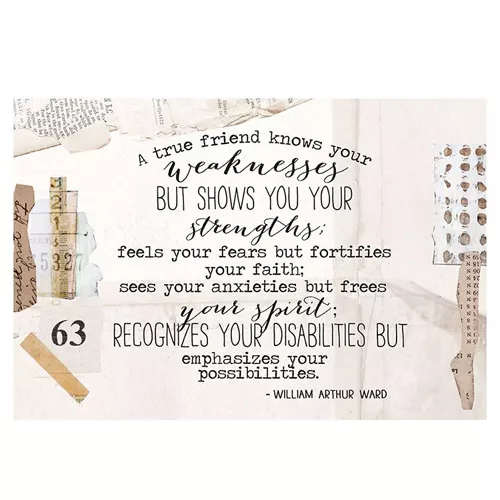 A true friend knows your
weaknesses
BUT SHOWS YOU YOUR
strengths;
feels your fears but fortifies
your faith;
sees your anxieties but frees
your spirit;
RECOGNIZES YOUR DISABILITIES BUT
emphasizes your
possibilities.
- WILLIAM ARTHUR WARD
5327
63